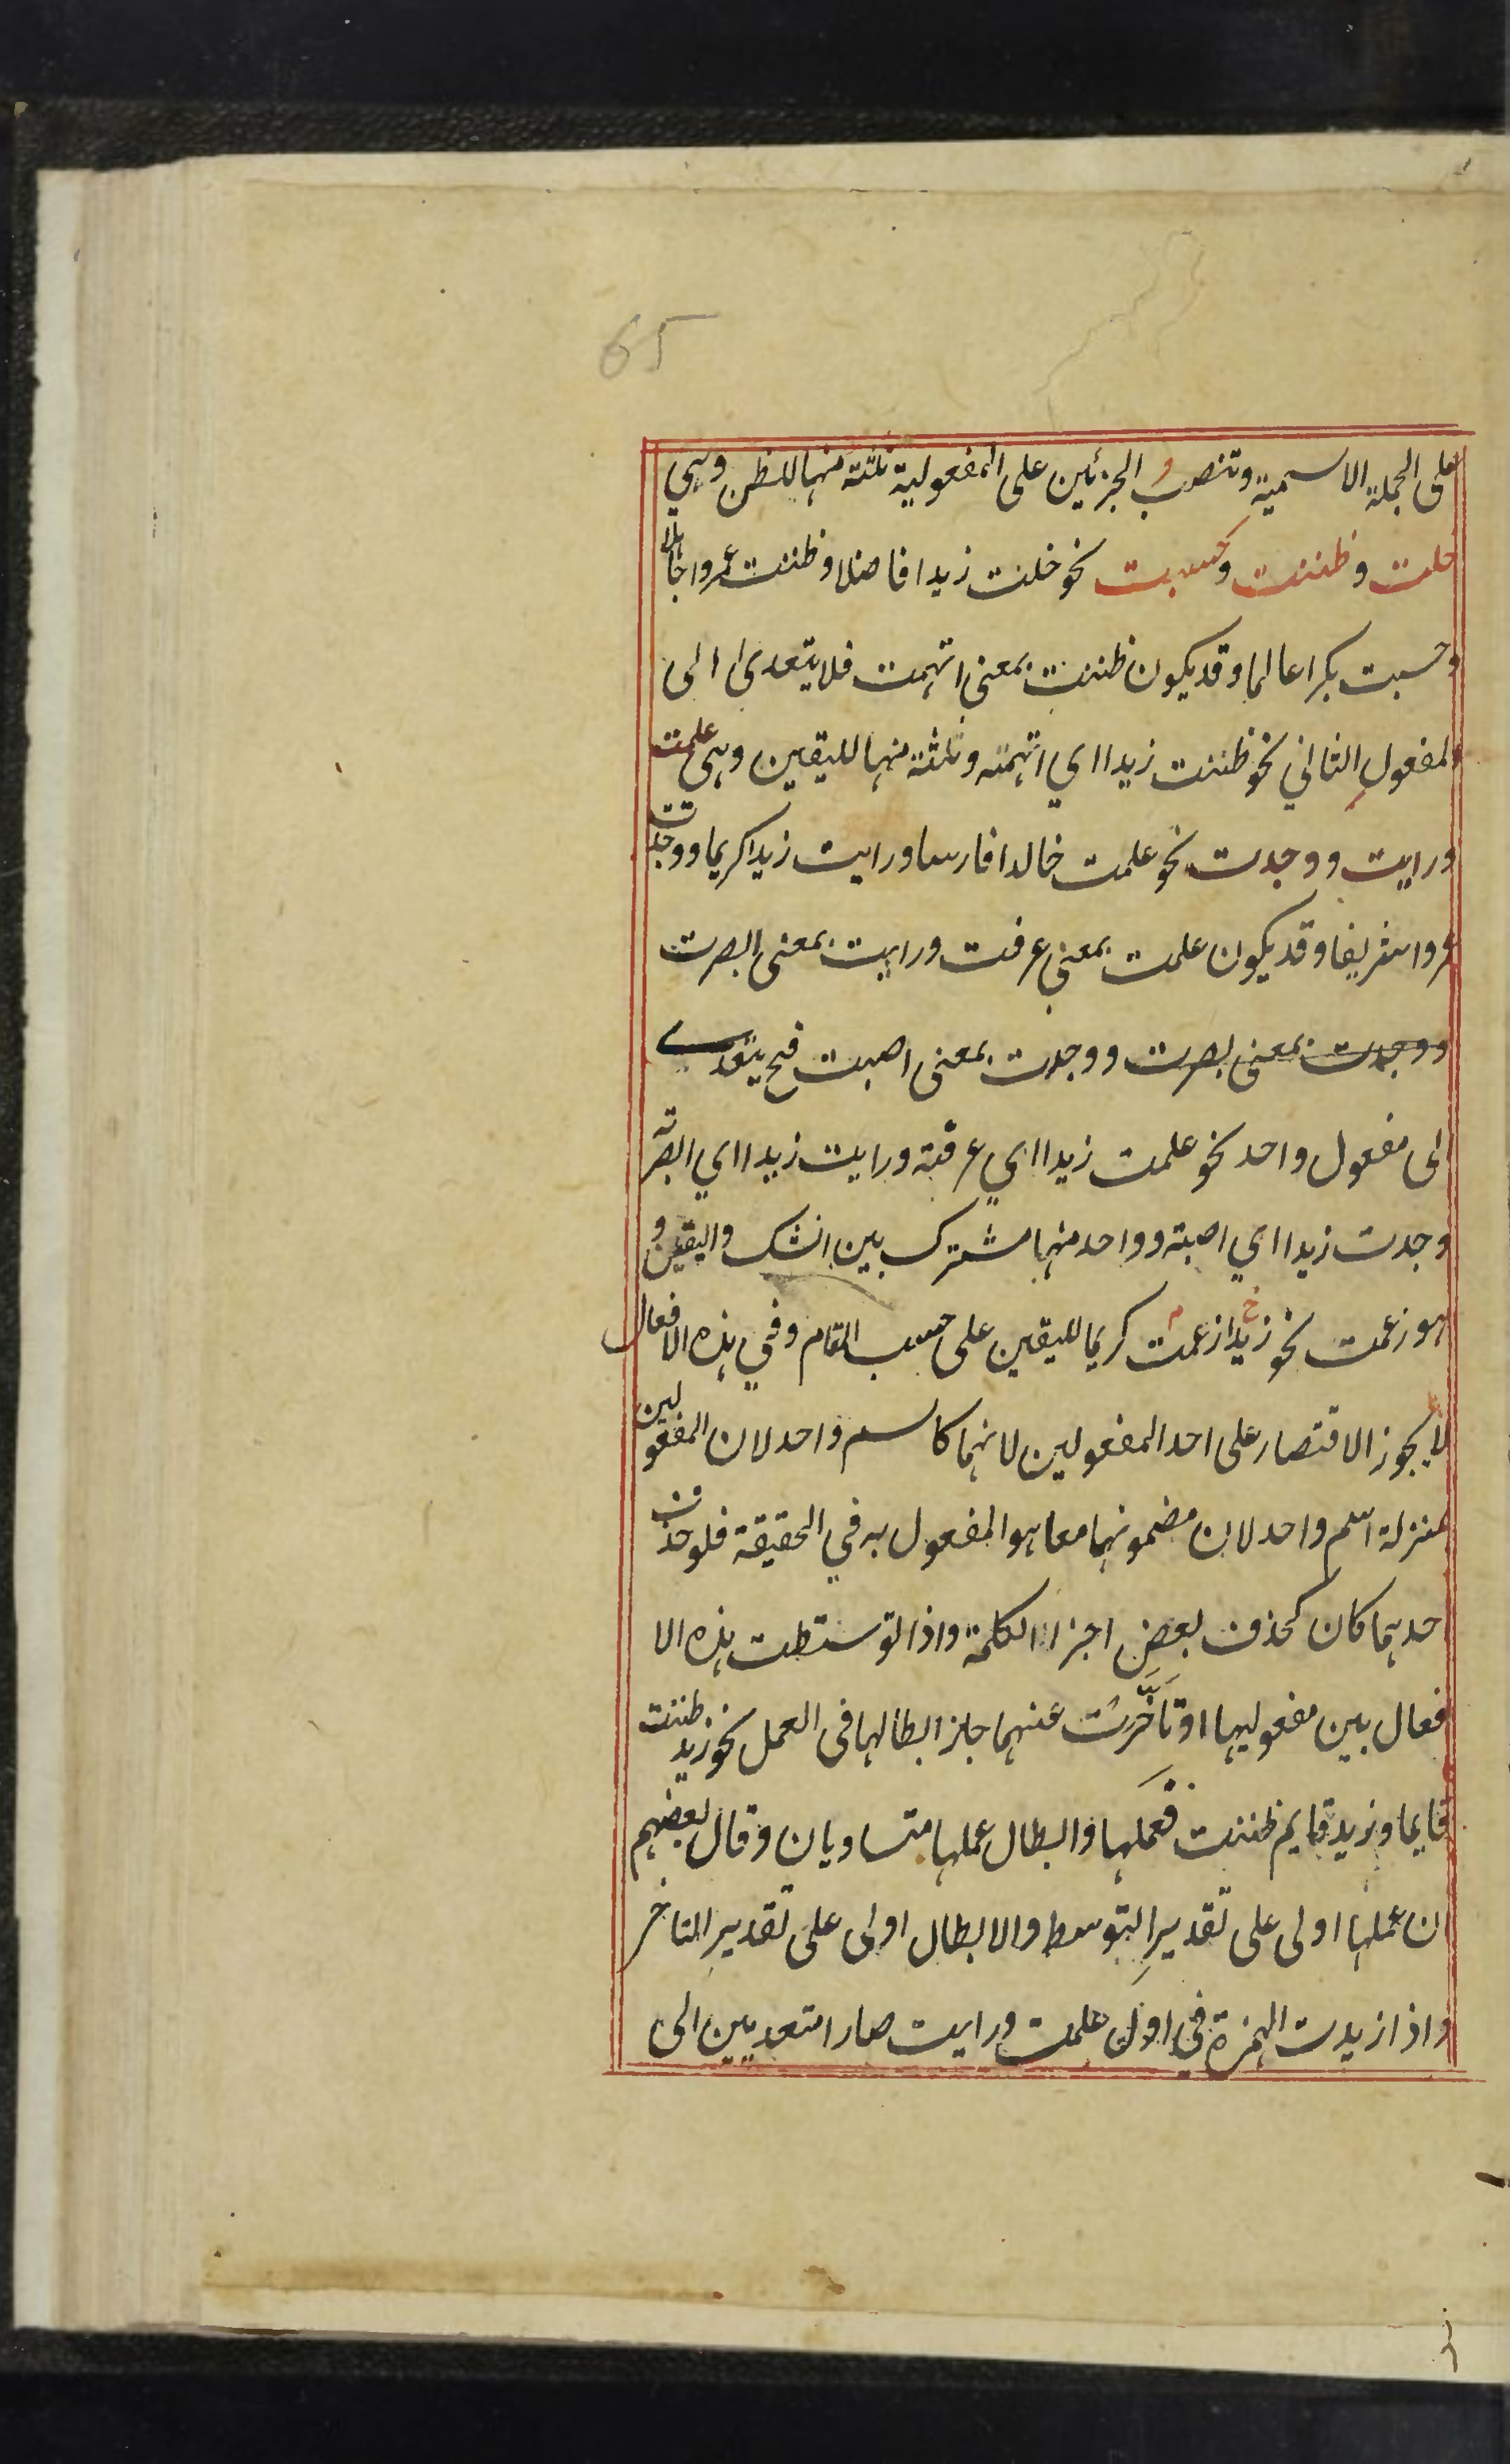 65
على الجملة الاسمية وتنصب الجزئين على المفعولية ثلثة منها للظن وهي
خلت وظننت وحسبت نحو خلت زيدا فاضلا وظننت عمروا جاهلا
وحسبت بكرا عالما وقد يكون ظننت بمعنى اتهمت فلا يتعدى الى
المفعول الثاني نحو ظننت زيدا اي اتهمته وثلثة منها لليقين وهي علمت
ورايت ووجدت نحو علمت خالدا فارسا ورايت زيدا كريما ووجدت
عمروا شريفا وقد يكون علمت بمعنى عرفت ورايت بمعنى ابصرت
ووجدت بمعنى بصرت ووجدت بمعنى اصبت فح يتعدى
الى مفعول واحد نحو علمت زيدا اي عرفته ورايت زيدا اي ابصرته
وجدت زيدا اي اصبته وواحد منها مشترك بين الشك واليقين و
هو زعمت نحو زيدا زعمت كريما لليقين على حسب المقام وفي هذه الافعال
لا يجوز الاقتصار على احد المفعولين لانهما كاسم واحد لان المفعولين
بمنزلة اسم واحد لان مضمونهما معا هو المفعول به في الحقيقة فلو حذف
احدهما كان كحذف بعض اجزاء الكلمة واذا توسطت هذه الا
فعال بين مفعوليها او تاخرت عنهما جاز ابطالها فى العمل نحو زيد ظننت
قايما وزيد قايم ظننت فعملها وابطال عملها متساويان وقال بعضهم
ان عملها اولى على تقدير التوسط والابطال اولى على تقدير التاخر
واذا زيدت الهمزة في اول علمت ورايت صارا متعديين الى